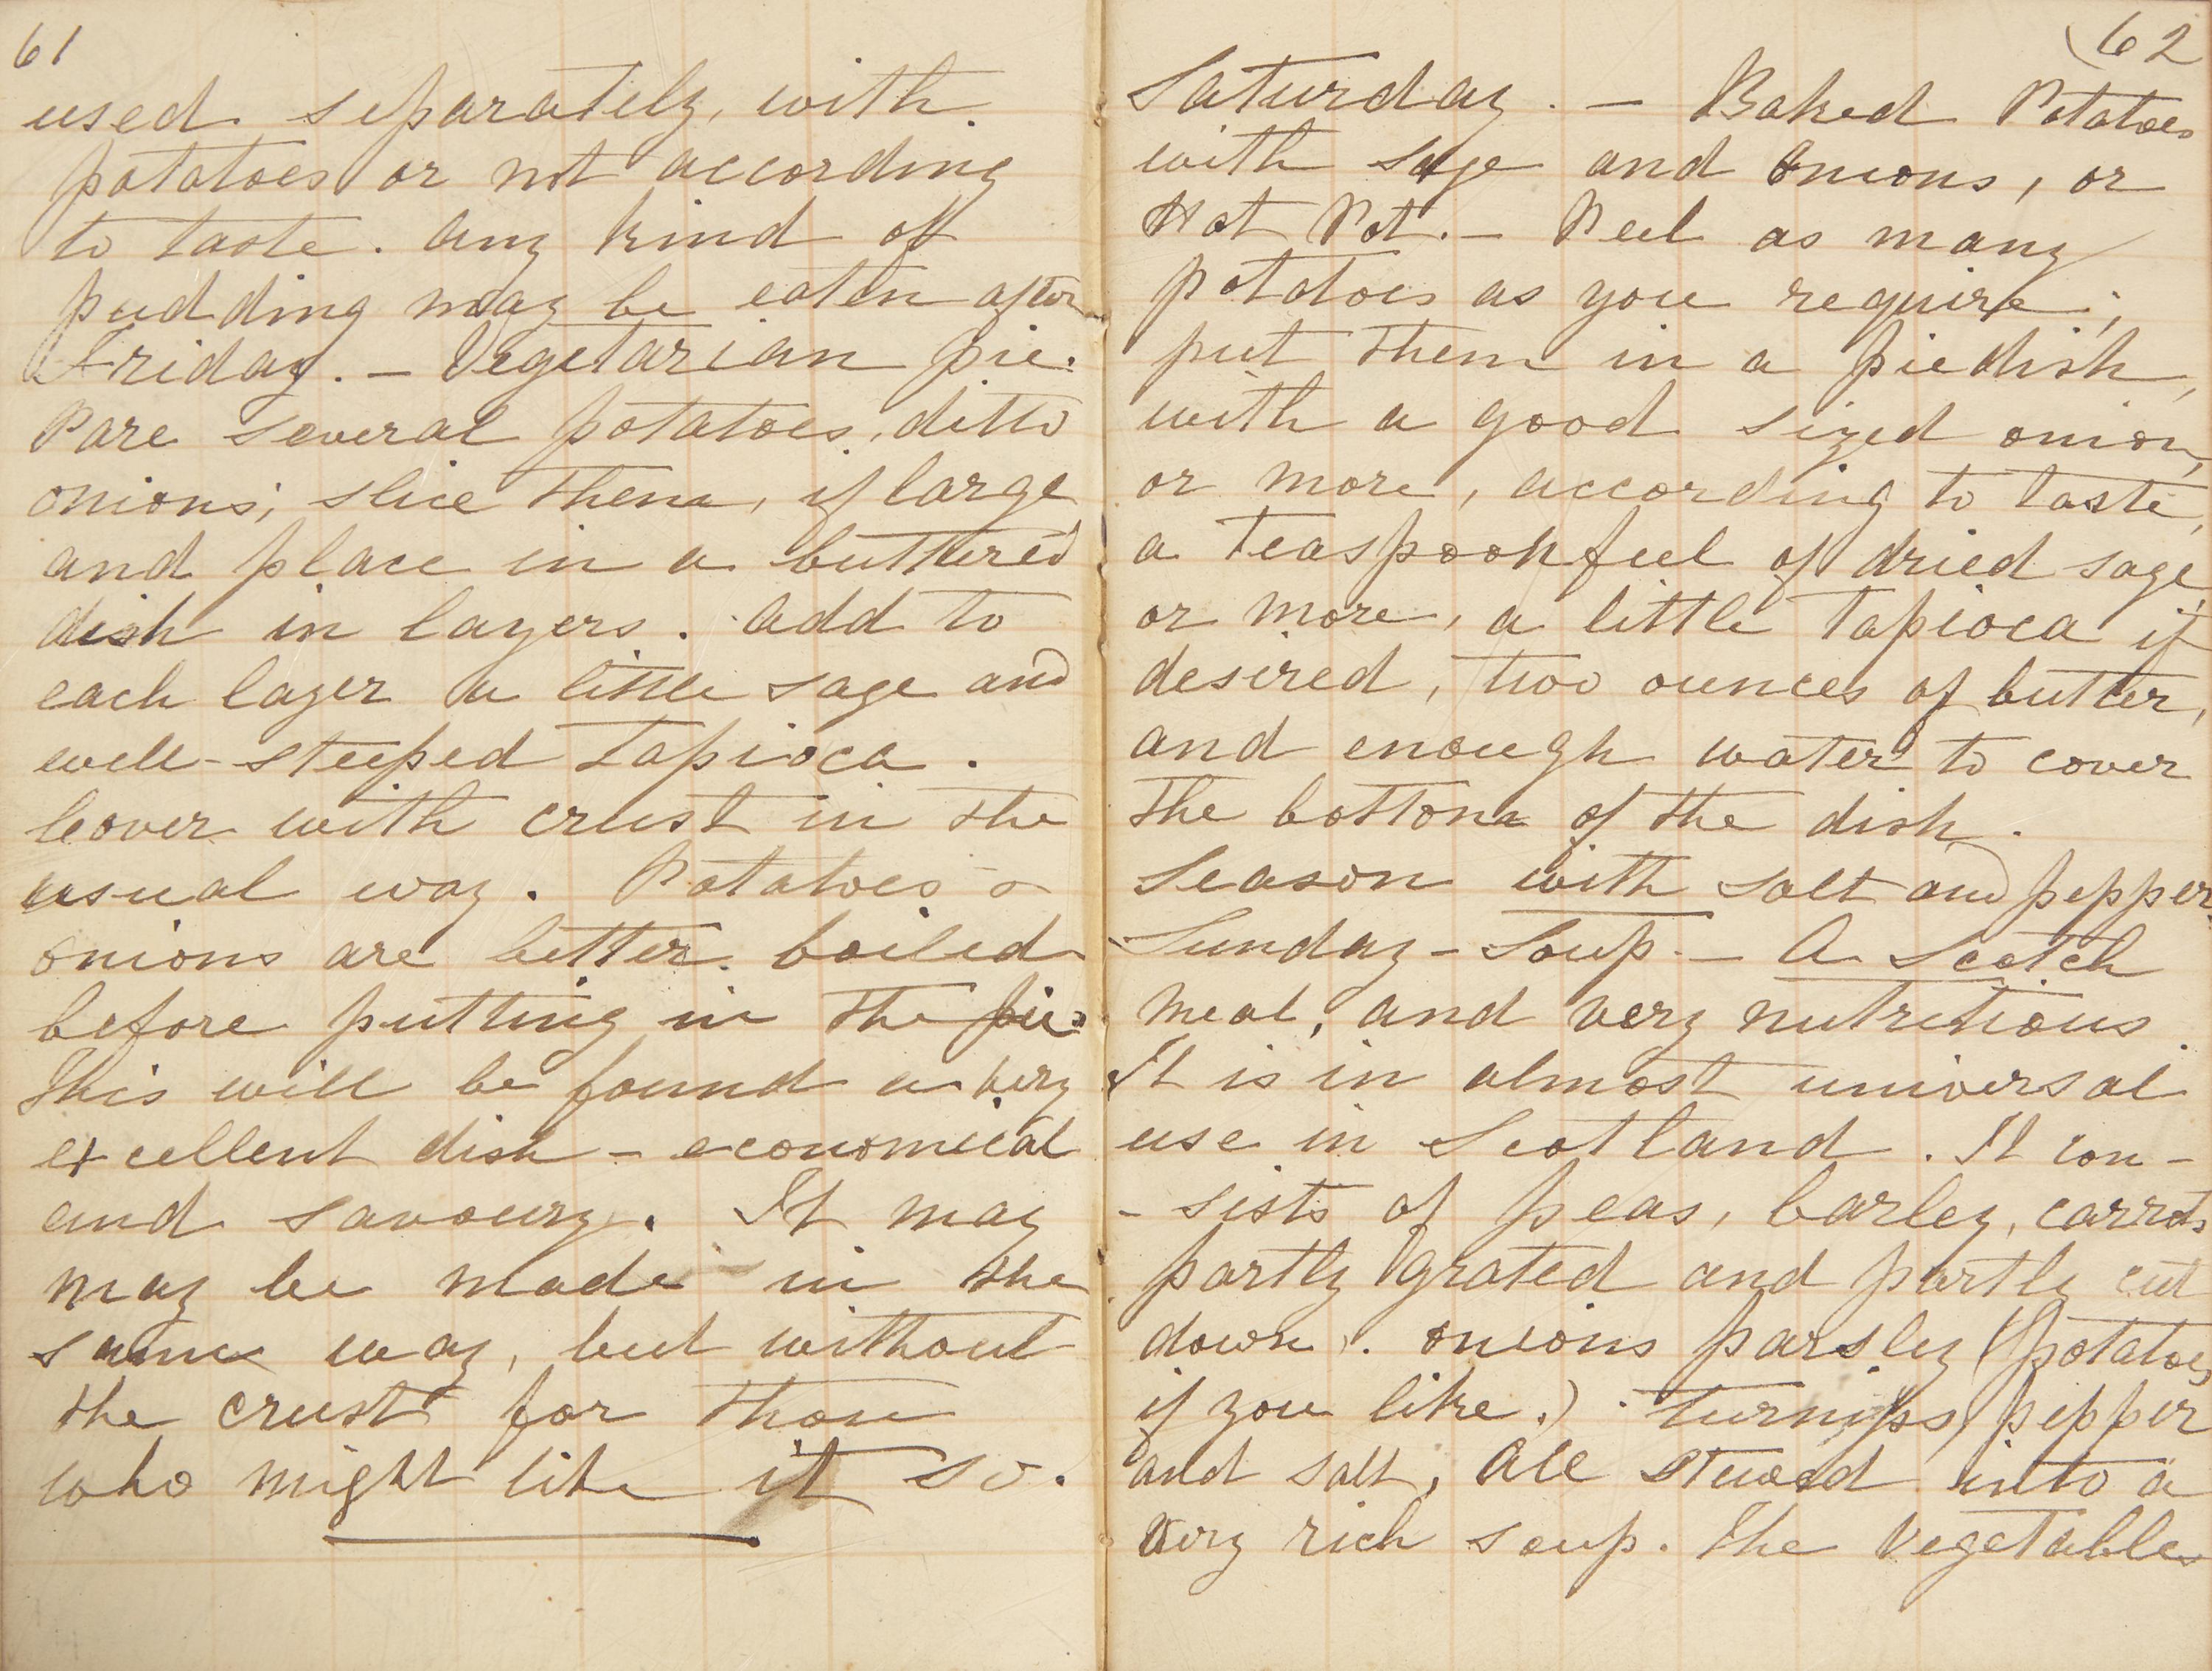 61
used separately, with
potatoes or not according
to taste. any kind of
pudding may be eaten after
Friday. — Vegetarian pie.
Pare several potatoes, ditto
onions; slice them, if large
and place in a buttered
dish in layers. add to
each layer a little sage and
well-steeped tapioca.
Cover with crust in the
usual way. Potatoes &
onions are better boiled
before putting in the pie.
This will be found a very
excellent dish - economical
and savoury. It may
may be made in the
same way, but without
the crust for those
who might like it so.
62
Saturday. — Baked Potatoes
with sage and onions, or
Hot Pot. — Peel as many
potatoes as you require;
put them in a piedish,
with a good sized onion,
or more, according to taste,
a teaspoonful of dried sage,
or more, a little tapioca if
desired, two ounces of butter,
and enough water to cover
the bottom of the dish.
Season with salt and pepper.
Sunday - Soup. — A Scotch
meal, and very nutritious.
It is in almost universal
use in Scotland. It con-
- sists of peas, barley, carrots
partly grated and partly cut
down. onions parsley (potatoes
if you like.) turnips, pepper
and salt, all stewed into a
very rich soup. The vegetables